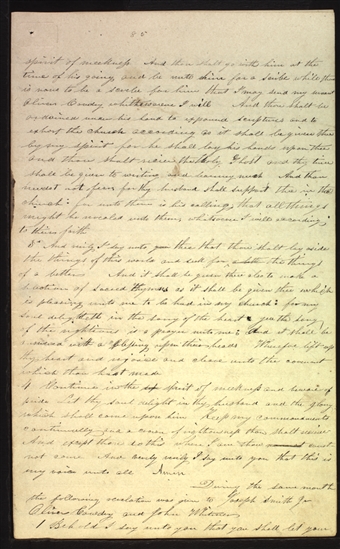 85
spirit of meekness. And thou shalt go with him at the
time of his going and be unto him for a scribe while there
is none to be a scribe for him that I may send my servant
Oliver Cowdery whithersoever I will. And thou shalt be
ordained under his hand to expound scriptures and to
exhort the church according as it shall be given thee
by my spirit for he shall lay his hands upon thee
and thou shalt receive the Holy Ghost and thy time
shall be given to writing and learning much And thou
needest not fear for thy husband shall support thee in the
church: for unto them is his calling, that all things
might be revealed unto them, whatsoever I will according
to their faith
3 And verily I say unto you thee that thou shalt lay aside
the things of this world and seek for the things
of a better. And it shall be given thee also to make a
selection of sacred Hymns as it shall be given thee which
is pleasing unto me to be had in my church: for my
soul delighteth in the song of the heart & yea the song
of the righteous is a prayer unto me: And it shall be
answered with a blessing upon their heads. Wherefore lift up
thy heart and rejoice and cleave unto the covenant
which thou hast made
4 Continue in the spirit of meekness and beware of
pride Let thy soul delight in thy husband and the glory
which shall come upon him. Keep my commandments
continually and a crown of righteousness thou shalt receive
And except thou do this where I am thou canst
not come And verily verily I say unto you that this is
my voice unto all Amen.
During the same month
the following revelation was given to Joseph Smith Jr
Oliver Cowdery and John Whitmer
1 Behold I say unto you that you shall let your